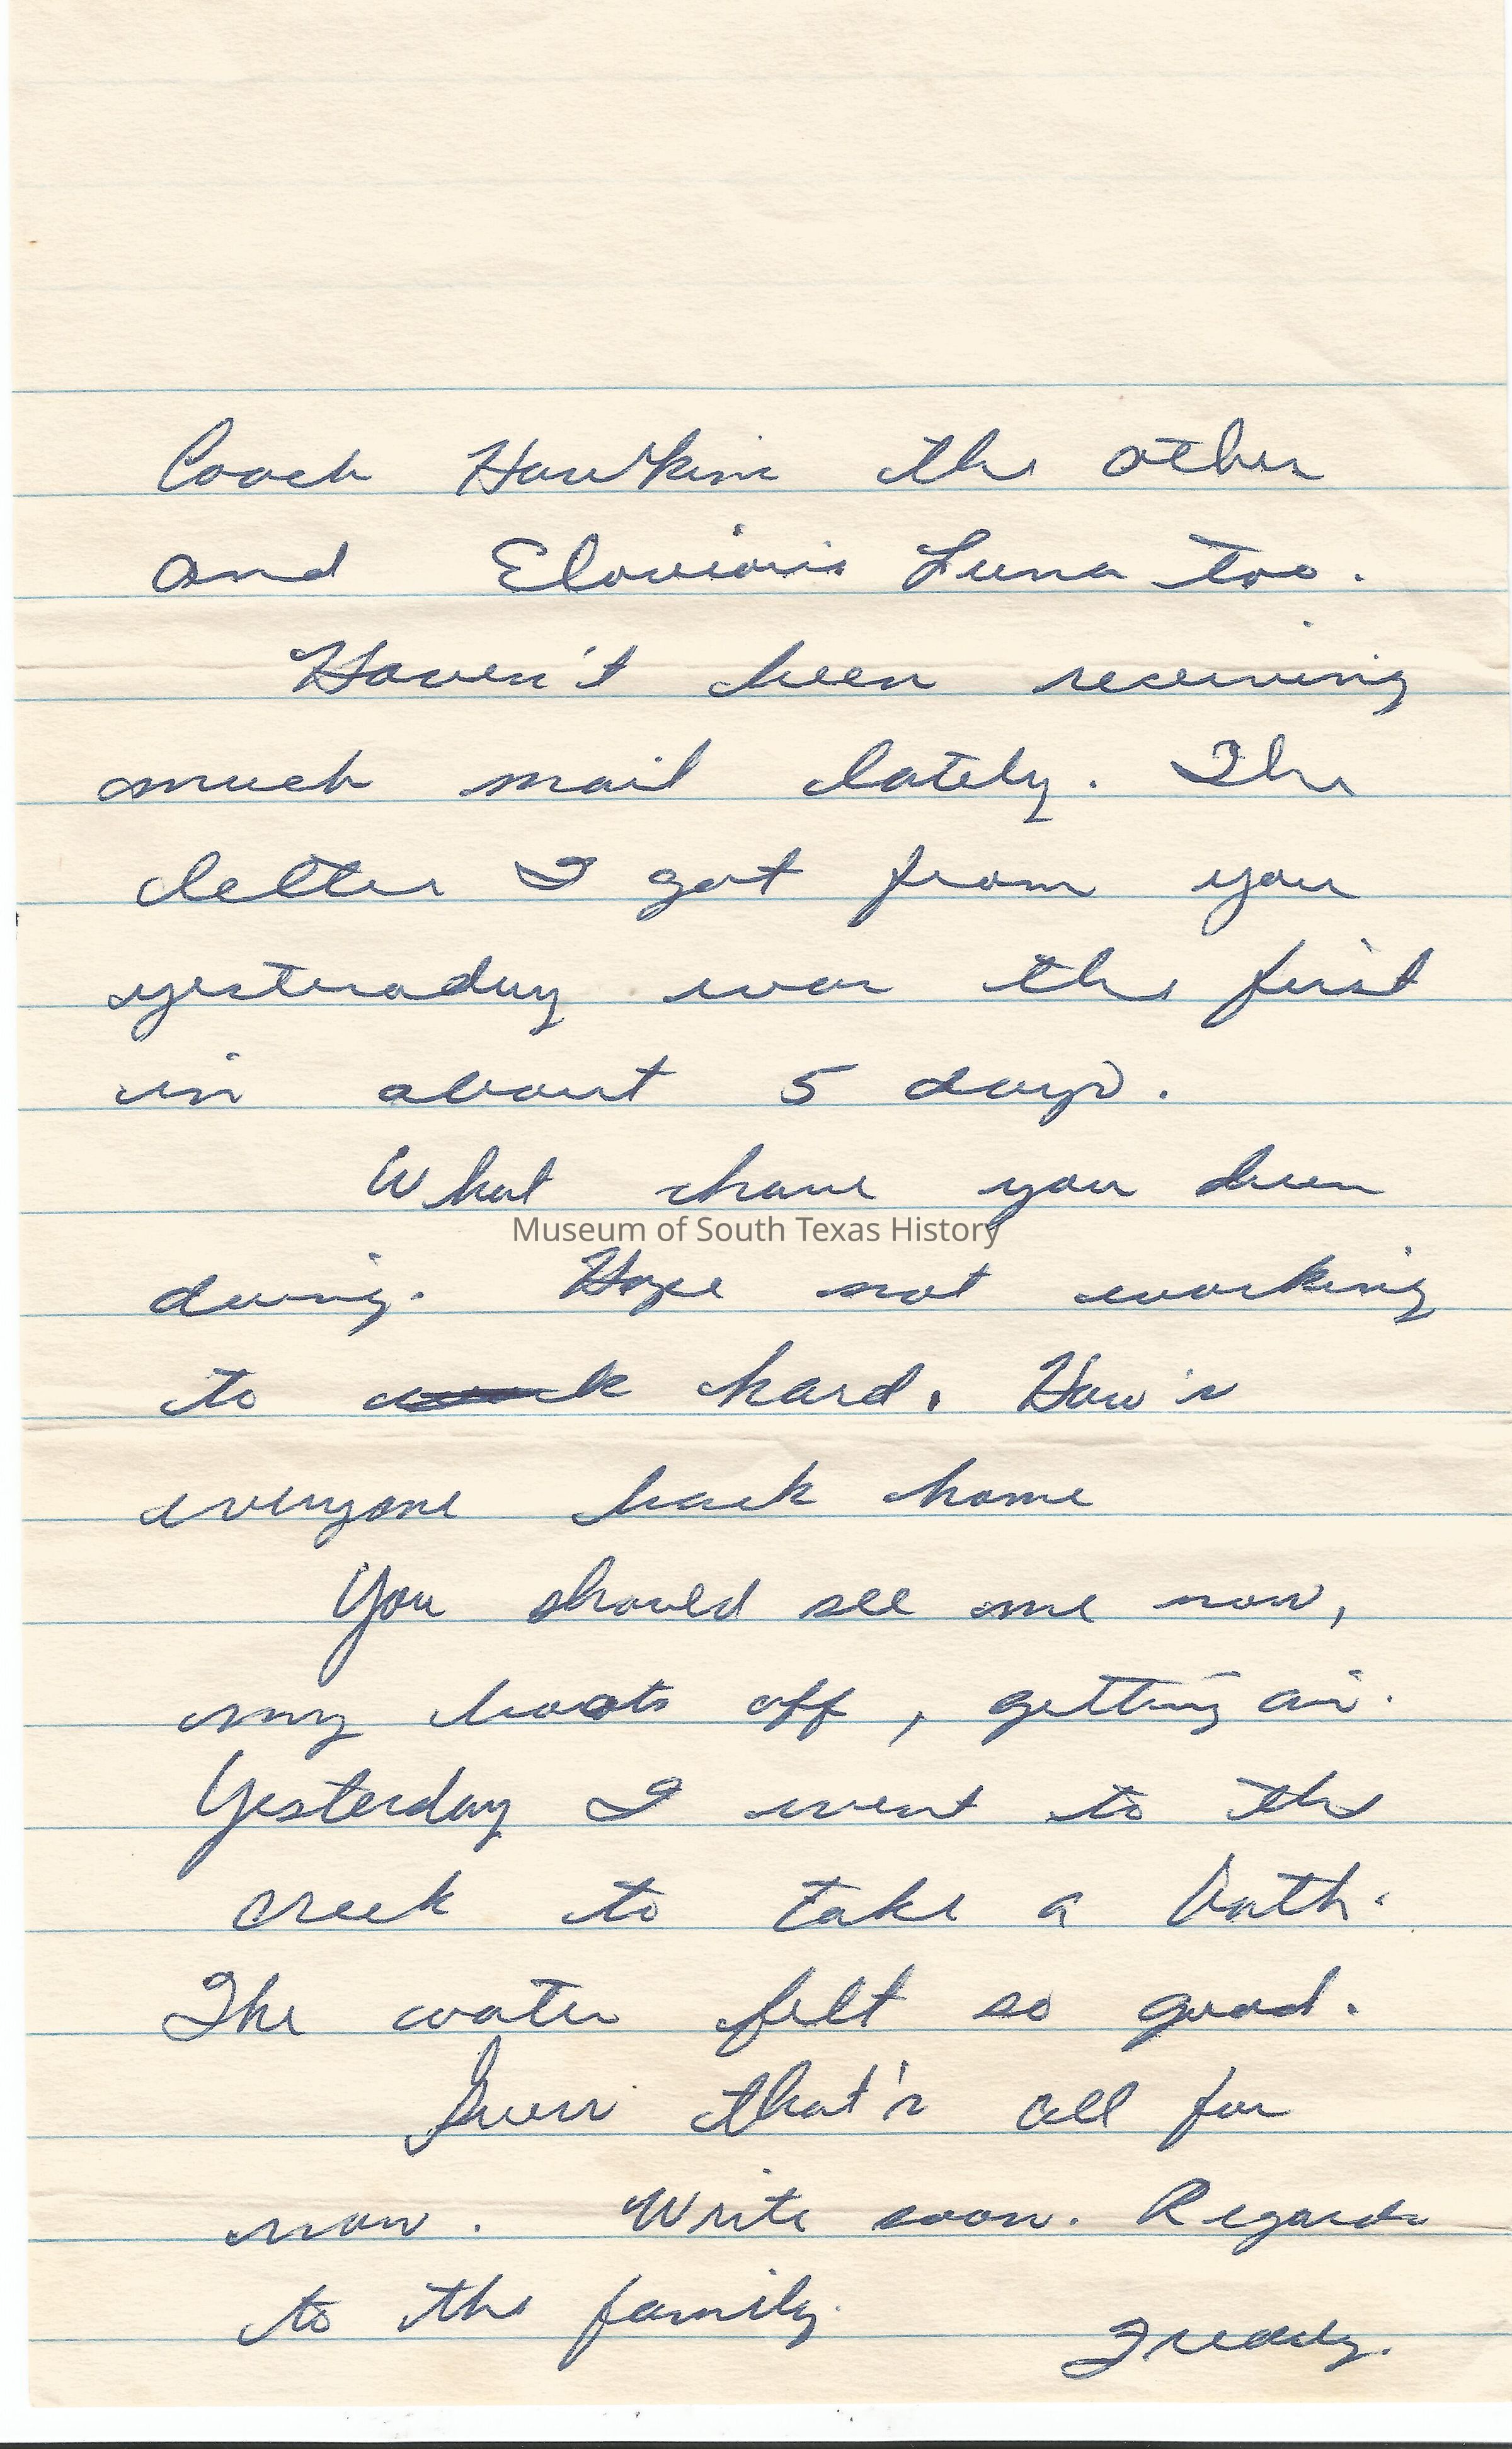 Coach Hawkins the other
and Luna too.
Haven't been receiving
much mail lately. The
letter I got from you
yesteraday was the first
in about 5 days.
What have you been
Museum of South Texas History
doing. Hope not working
to work hard. How's
everyone back home
You should see me now,
my boots off, getting air.
Yesterday I went to the
creek to take a bath.
The water felt so good.
Guess that's all for
now. Write soon. Regards
to the family.
Freddy.